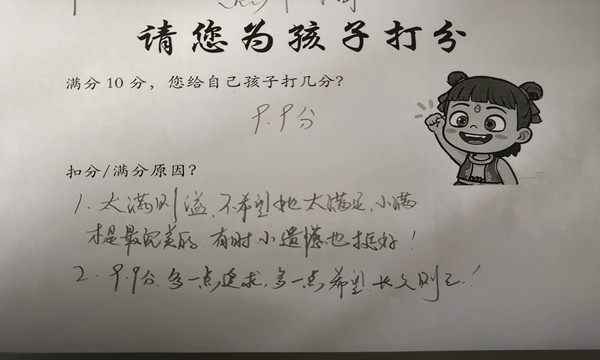 请您为孩子打分
满分10分，您给自己孩子打几分？
9.9分
扣分/满分原因？
1. 太满则溢，不希望她太满足，小满
才是最完美的，有时小遗憾也挺好！
2. 9.9分，多一点追求，多一点希望，长久则已！